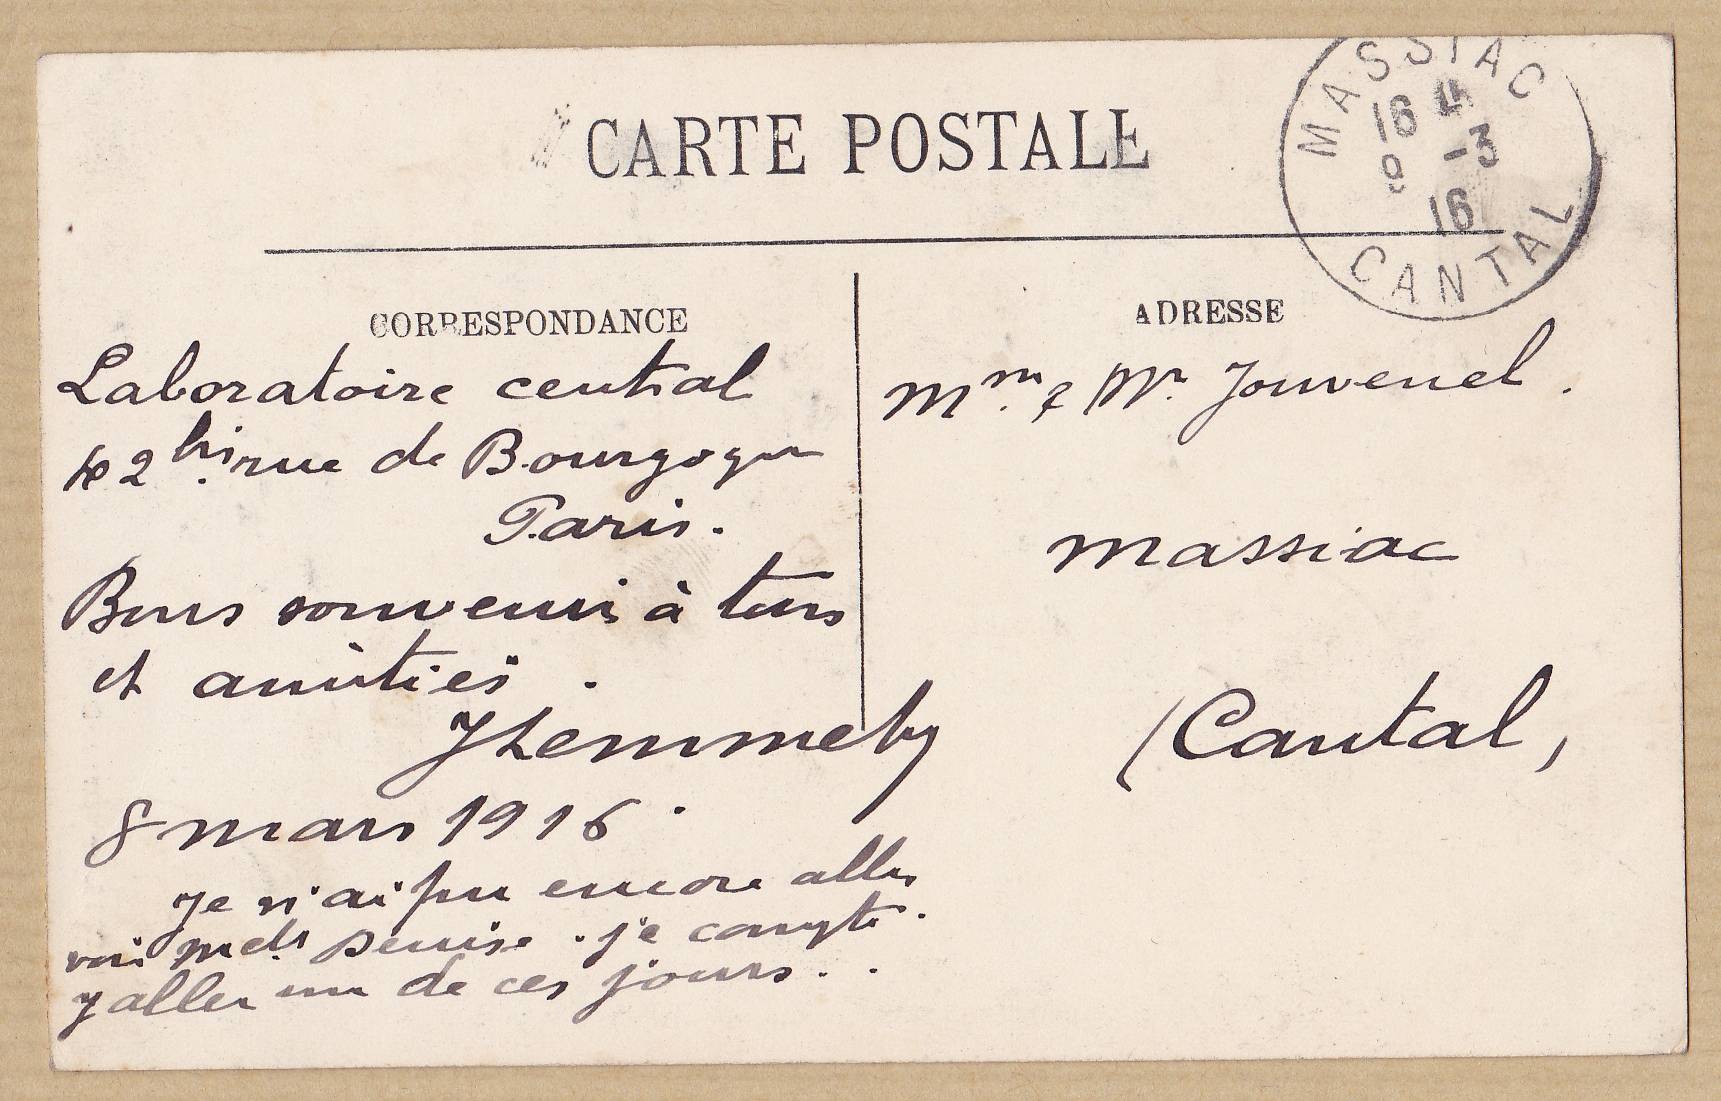 CARTE POSTALE
MASSIAC
16 4
9 -3
16
CANTAL
CORRESPONDANCE
Laboratoire central
42 bis rue de Bourgogne
Paris.
Bons souvenirs à tous
et amitiés.
8 mars 1916.
Je n'ai pu encore aller
voir Melle Denise. je compte
y aller un de ces jours..
ADRESSE
Mme & Mr Jouvenel.
Massiac
(Cantal)